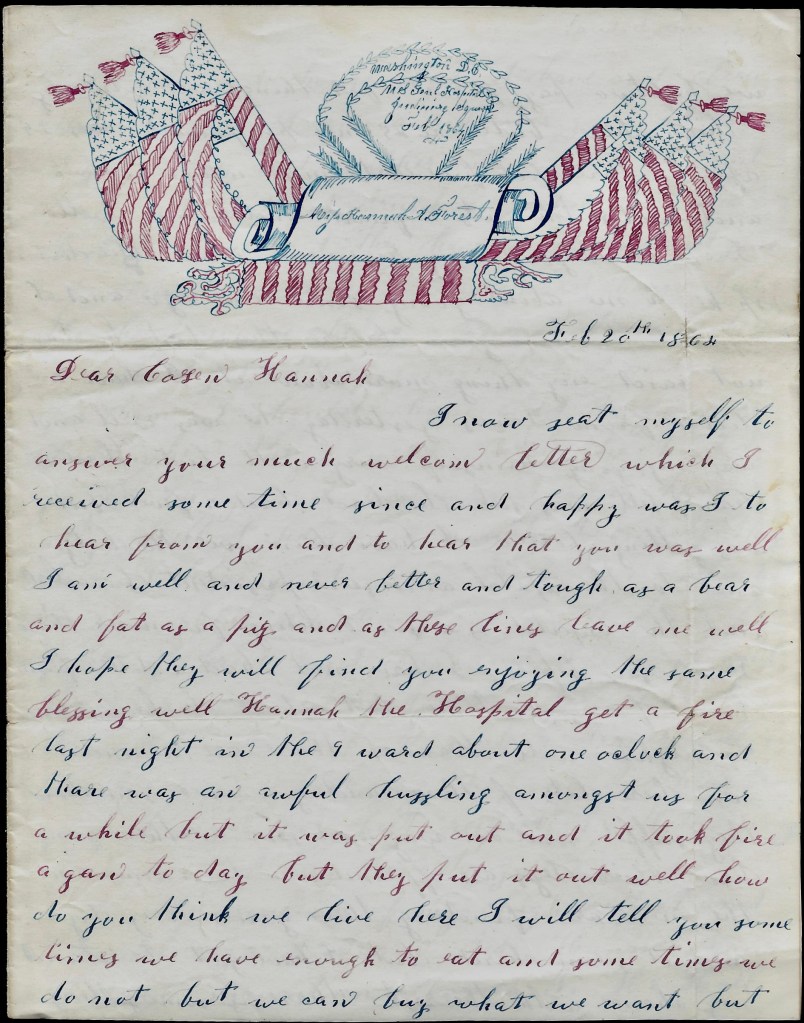 Washington D.C.
U.S. Genl Hospital
Judiciary Square
Feb 1864
Miss Hannah A. Forest.
Feb 20th 1864
Dear Cozen Hannah
I now seat myself to
answer your much welcom letter which I
received some time since and happy was I to
hear from you and to hear that you was well
I am well and never better and tough as a bear
and fat as a pig and as these lines leave me well
I hope they will find you enjoying the same
blessing well Hannah the Hospital get a fire
last night in the 9 ward about one oclock and
thare was an awful hussling amongst us for
a while but it was put out and it took fire
a gan to day but they put it out well how
do you think we live here I will tell you some
times we have enough to eat and some times we
do not but we can buy what we want but